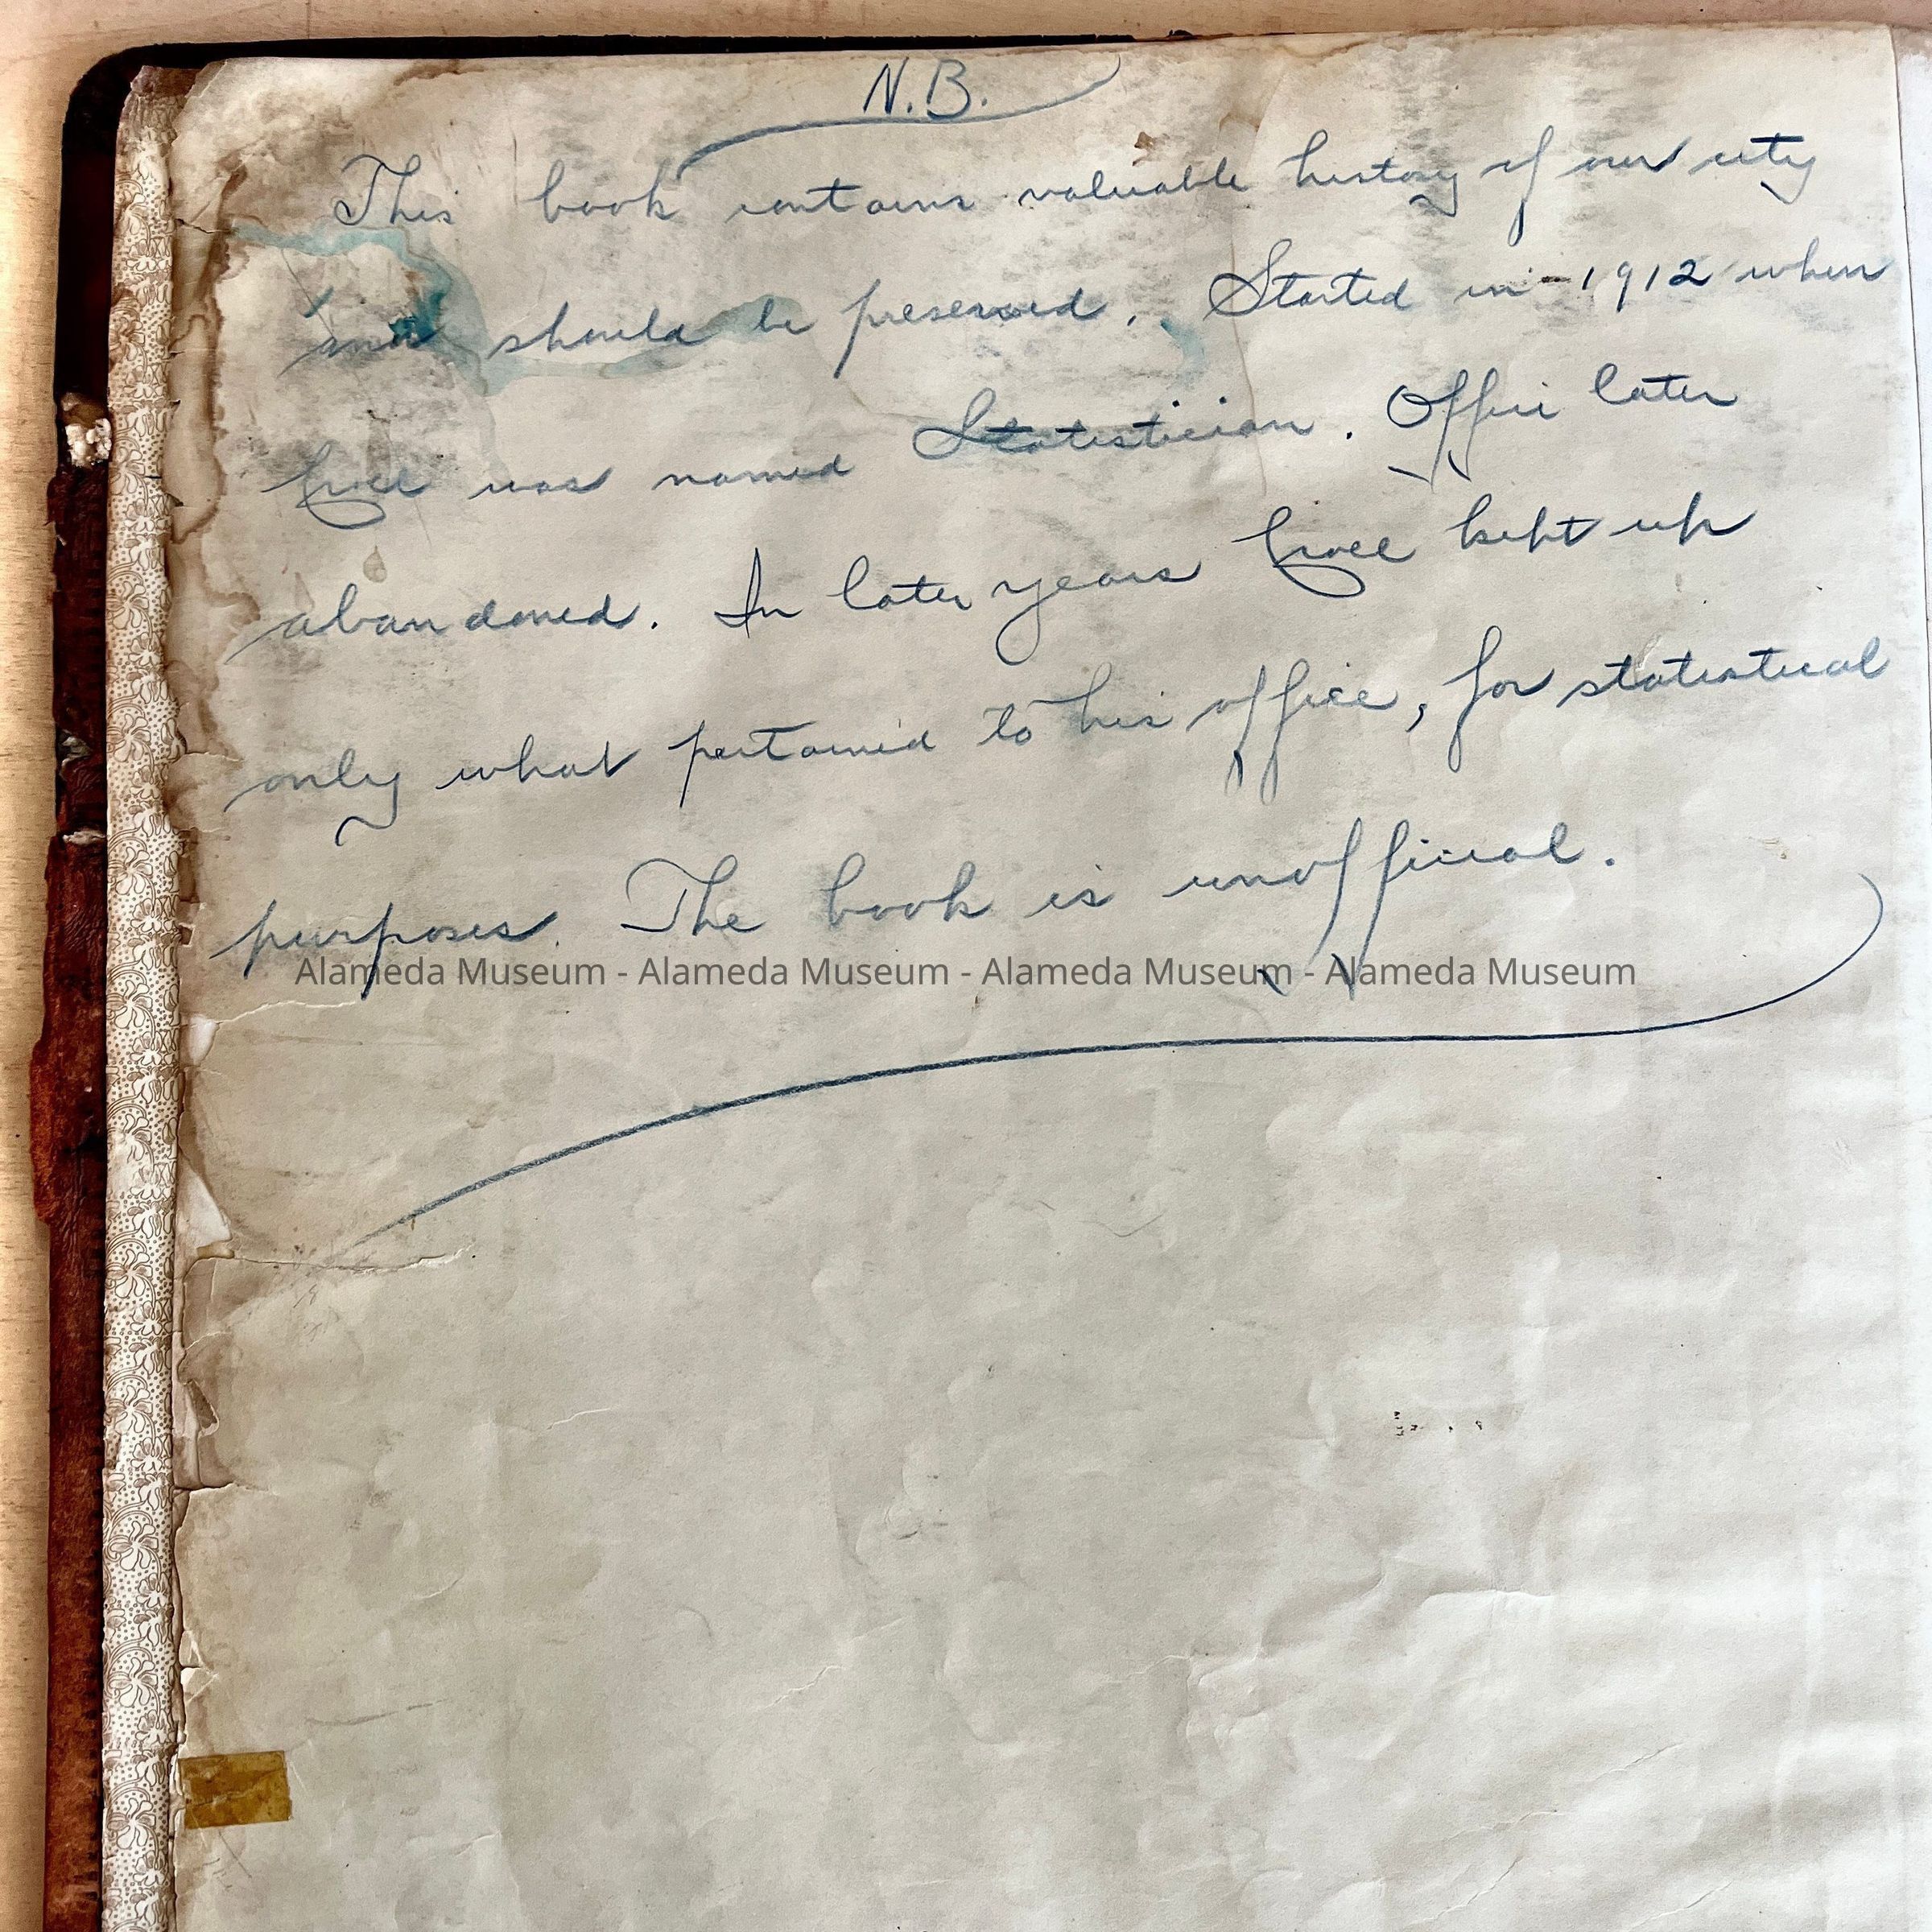 N.B.
This book contains valuable history of our city
and should be preserved. Started in 1912 when
was named Statistician. Office later
abandoned. In later years kept up
only what pertained to his office, for statistical
purposes. The book is unofficial.
Alameda Museum - Alameda Museum - Alameda Museum - Alameda Museum